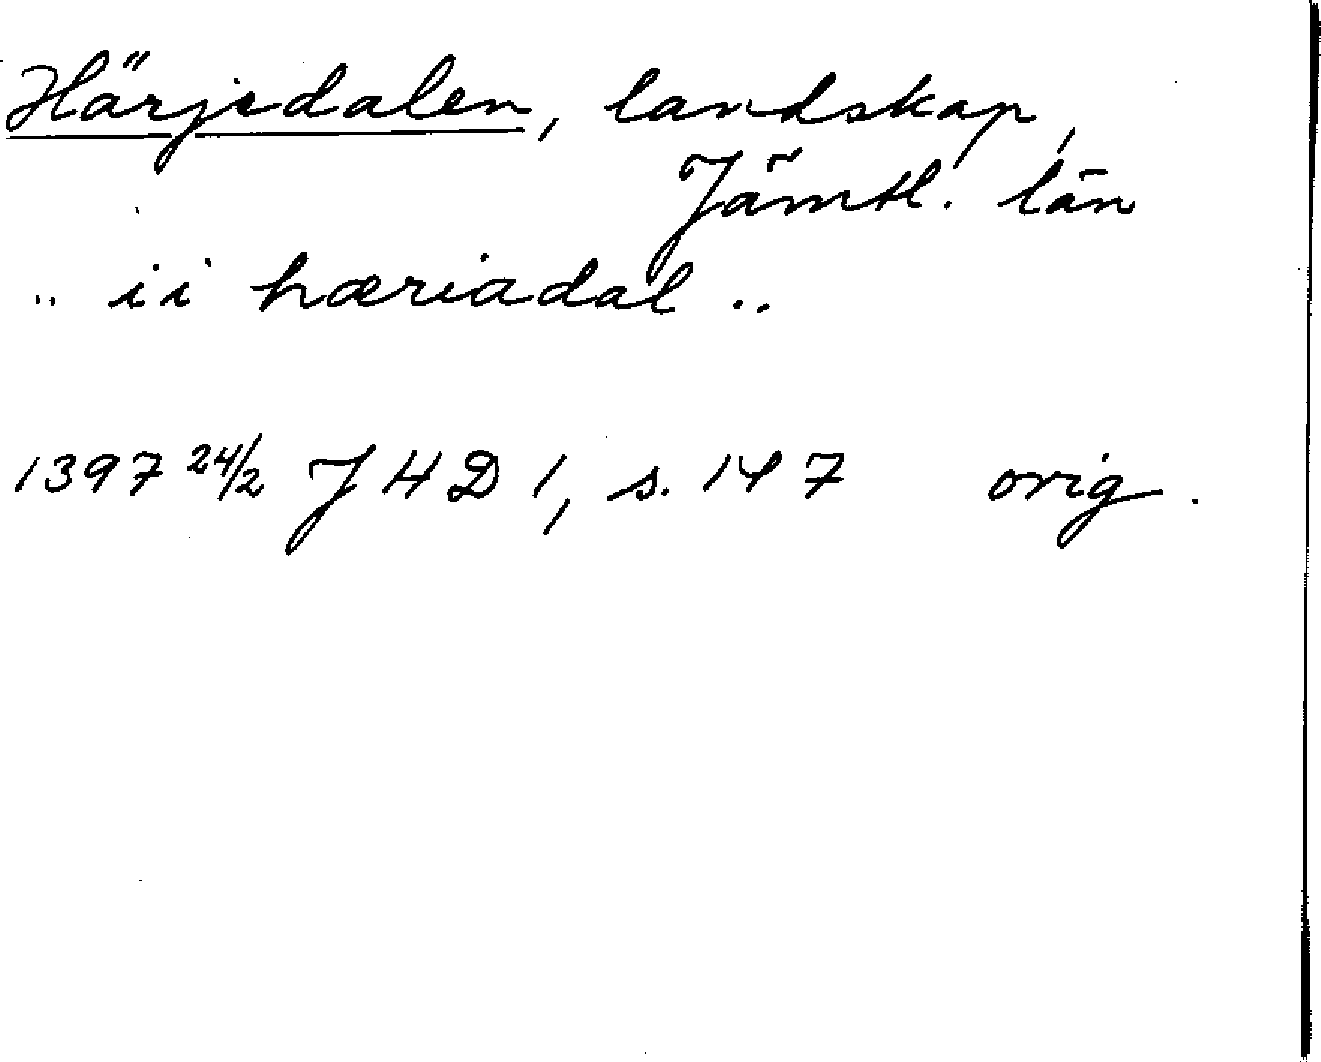 Härjedalen, landskap,
Jämtl. län
.. i i hæriadal ..
1397 24/2 JHD 1, s. 147 orig.